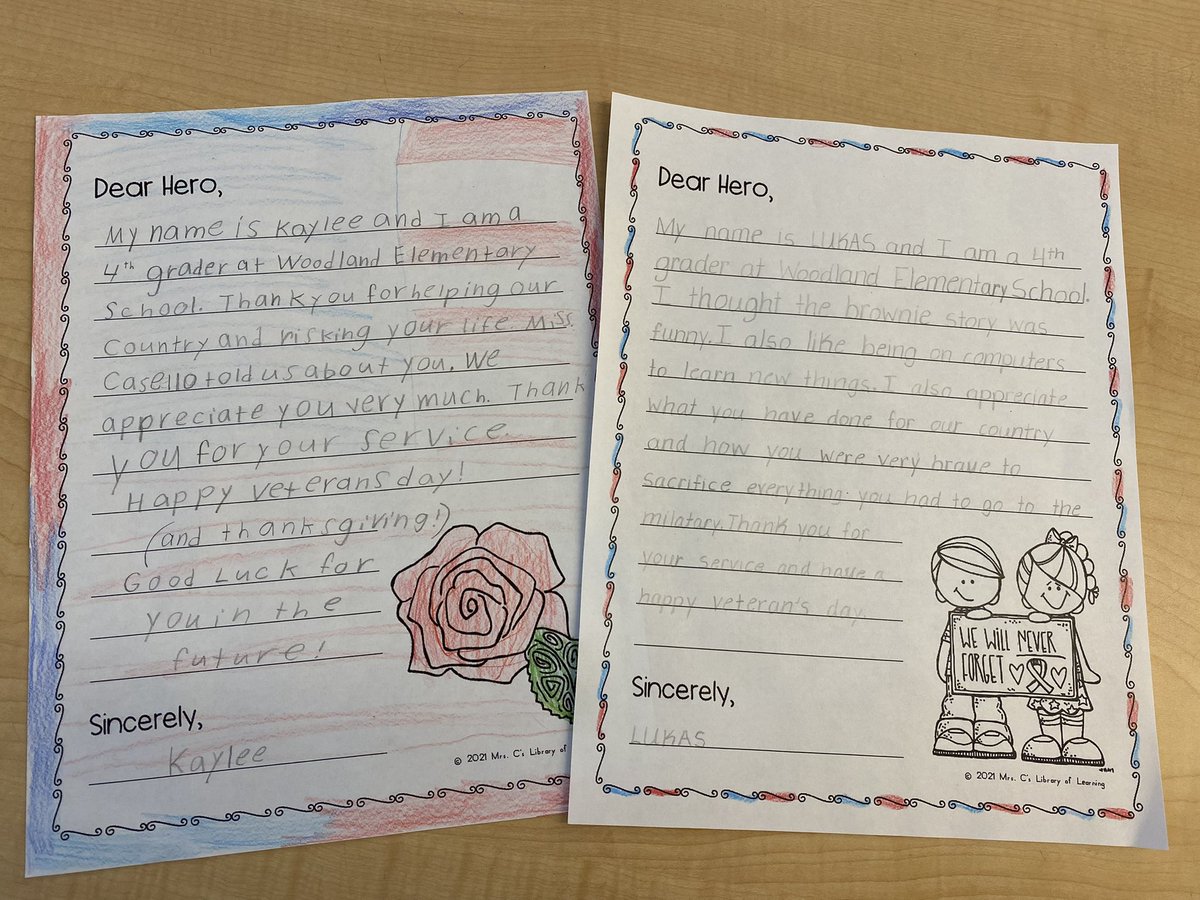 Dear Hero,
My name is Kaylee and I am a
4th grader at Woodland Elementary
School. Thank you for helping our
Country and risking your life. Miss.
Casello told us about you. We
appreciate you very much. Thank
you for your service.
Happy veterans day!
(and thanksgiving!)
Good Luck for
you in the
future!
Sincerely,
Kaylee
© 2021 Mrs. C's Library of
Dear Hero,
My name is LUKAS and I am a 4th
grader at Woodland Elementary School.
I thought the brownie story was
funny. I also like being on computers
to learn new things. I also appreciate
what you have done for our country
and how you were very brave to
sacrifice everything. you had to go to the
milatary. Thank you for
your service and have a
happy veteran's day.
WE WILL NEVER
FORGET
Sincerely,
LUKAS
© 2021 Mrs. C's Library of Learning